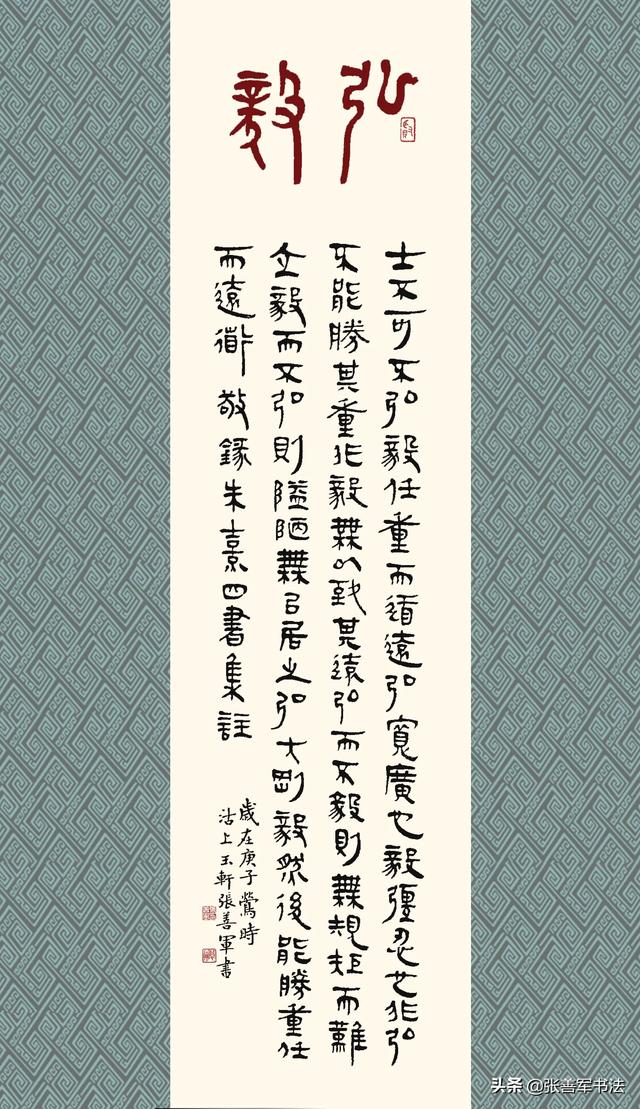 弘毅
士不可不弘毅任重而道遠弘寬廣也毅彊忍也非弘
不能勝其重非毅無以致其遠弘而不毅則無規矩而難
立毅而不弘則隘陋無以居之弘大剛毅然後能勝重任
而遠衜 敬錄朱熹四書集註
歲在庚子鶯時
沽上玉軒張善軍書
头条 @张善军书法